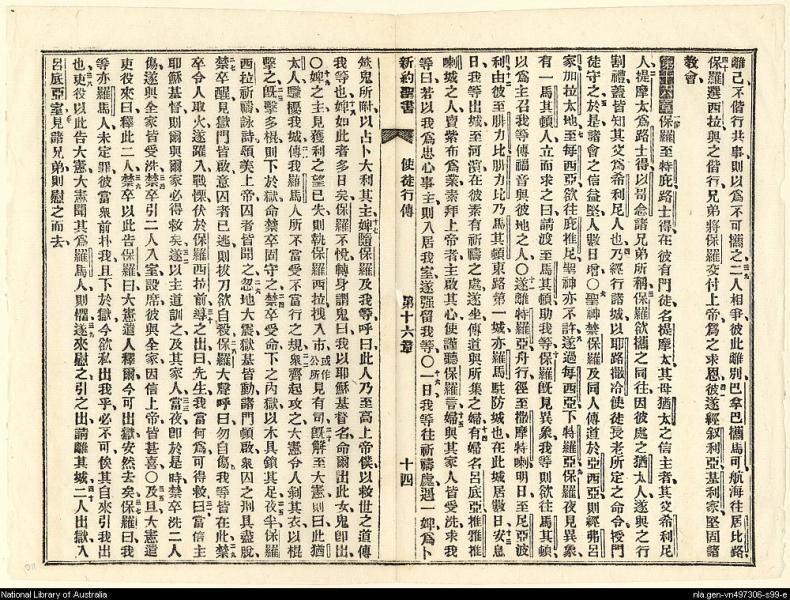 離己不偕行共事則以爲不可攜之二人相爭彼此離別巴拿巴攜馬可航海往居比路
保羅選西拉與之偕行兄弟將保羅交付上帝爲之求恩彼遂經叙利亞基利家堅固諸
教會
保羅至特庇路士得在彼有門徒名提摩太其母猶太之信主者其父希利尼
人提摩太爲路士得以哥念諸兄弟所稱保羅欲攜之同往因彼處之猶太人遂與之行
割禮蓋皆知其父爲希利尼人也乃經行諸城以耶路撒冷使徒長老所定之命令授門
徒守之於是諸會之信益堅人數日增〇聖神禁保羅及同人傳道於亞西亞則經弗呂
家加拉太地至每西亞欲往庇推尼聖神亦不許遂過每西亞下特羅亞保羅夜見異象
有一馬其頓人立而求之曰請渡至馬其頓助我等保羅既見異象我等則欲往馬其頓
以爲主召我等傳福音與彼地之人〇遂離特羅亞舟行徑至撒摩特喇明日至尼亞波
利由彼至腓力比腓力比乃馬其頓東路第一城亦羅馬駐防城也在此城居數日安息
日我等出城至河濱在彼素有祈禱之處遂坐傳道與所集之婦有婦名呂底亞推雅推
喇城之人賣紫布爲業素拜上帝者主啟其心使謹聽保羅言婦與其家人皆受洗求我
等曰若以我爲忠心事主則入居我室遂强留我等〇一日我等往祈禱處遇一婢爲卜
新約聖書 使徒行傳 第十六章 十四
筮鬼所附以占卜大利其主婢隨保羅及我等呼曰此人乃至高上帝僕以救世之道傳
我等也婢如此者多日矣保羅不悅轉身謂鬼曰我以耶穌基督名命爾出此女鬼卽出
〇婢之主見獲利之望已失則執保羅西拉拽入市或作公所見有司旣解至大憲則曰此猶
太人騷擾我城傳我羅馬人所不當受不當行之規衆齊起攻之大憲令人剝其衣以棍
擊之旣擊多棍則下於獄命禁卒固守之禁卒受命下之內獄以木具鎖其足夜半保羅
西拉祈禱詠詩頌美上帝囚者皆聞之忽地大震獄基皆動諸門頓啟衆囚之拘具盡脫
禁卒醒見獄門皆啟意囚者已逃則拔刀欲自殺保羅大聲呼曰勿自傷我等皆在此禁
卒令人取火遂躍入戰慄伏於保羅西拉前導之出曰先生我當何爲可得救曰當信主
耶穌基督則爾與爾家必得救矣遂以主道訓之及其家人當夜卽於是時禁卒洗二人
傷遂與全家皆受洗禁卒引二人入室設席彼與全家因信上帝皆甚喜〇及旦大憲遣
吏役來曰釋此二人禁卒以此告保羅曰大憲遣人釋爾今可出獄安然去矣保羅曰我
等亦羅馬人未定罪彼當衆前扑我且下於獄今欲私出我乎必不可俟其自來引我出
也吏役以此告大憲大憲聞其爲羅馬人則懼遂來慰之引之出請離其城二人出獄入
呂底亞室見諸兄弟則慰之而去
National Library of Australia
nla.gen-vn497306-s99-e